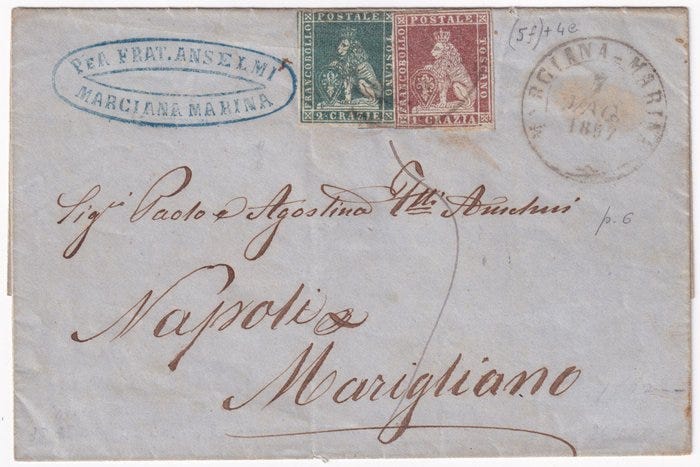 PER FRAT. ANSELMI
MARCIANA MARINA
FRANCOBOLLO POSTALE TOSCANO
2 CRAZIE
FRANCOBOLLO POSTALE TOSCANO
1 CRAZIA
(5f)+4e
MARCIANA-MARINA
7
MAG
1857
Paolo e Agostino
p. 6
Napoli
Marigliano